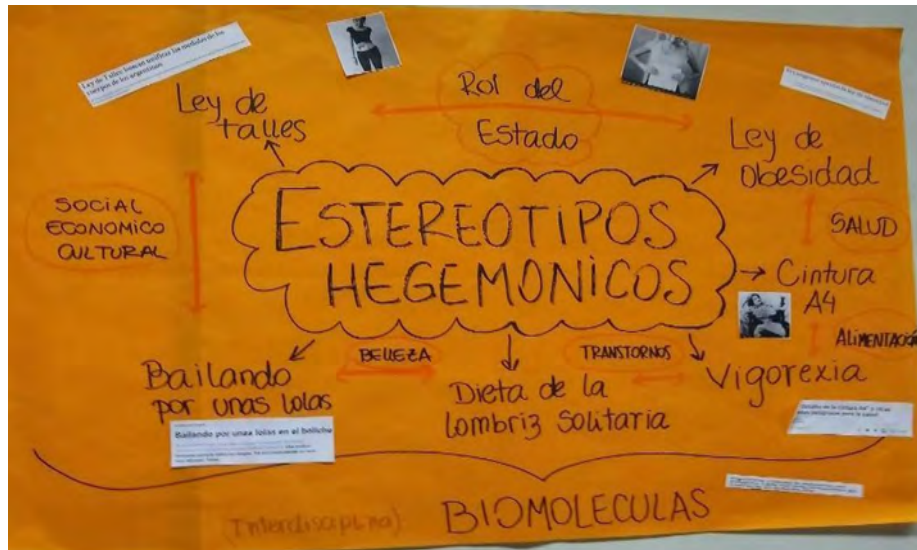 Ley de Talles: buscan unificar las medidas de los
cuerpos de los argentinos
Ley de
talles
Rol del
Estado
Ley de
Obesidad
SOCIAL
ECONOMICO
CULTURAL
ESTEREOTIPOS
HEGEMONICOS
SALUD
Cintura
A4
ALIMENTACIÓN
BELLEZA
TRANSTORNOS
Vigorexia
Bailando
por unas lolas
Dieta de la
lombriz solitaria
Bailando por unas lolas en el boliche
(Interdisciplina)
BIOMOLECULAS